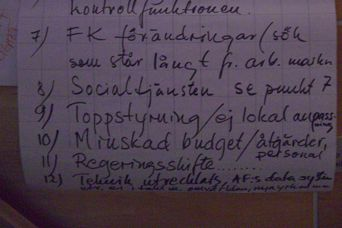 kontrollfunktionen.
7) FK förändringar/sök
som står långt fr. arb. markn
8) Socialtjänsten se punkt 7
9) Toppstyrning/ej lokal anpass-
ning
10) Minskad budget/åtgärder,
personal
11) Regeringsskifte........
12) Teknik utvecklats, AF:s data system